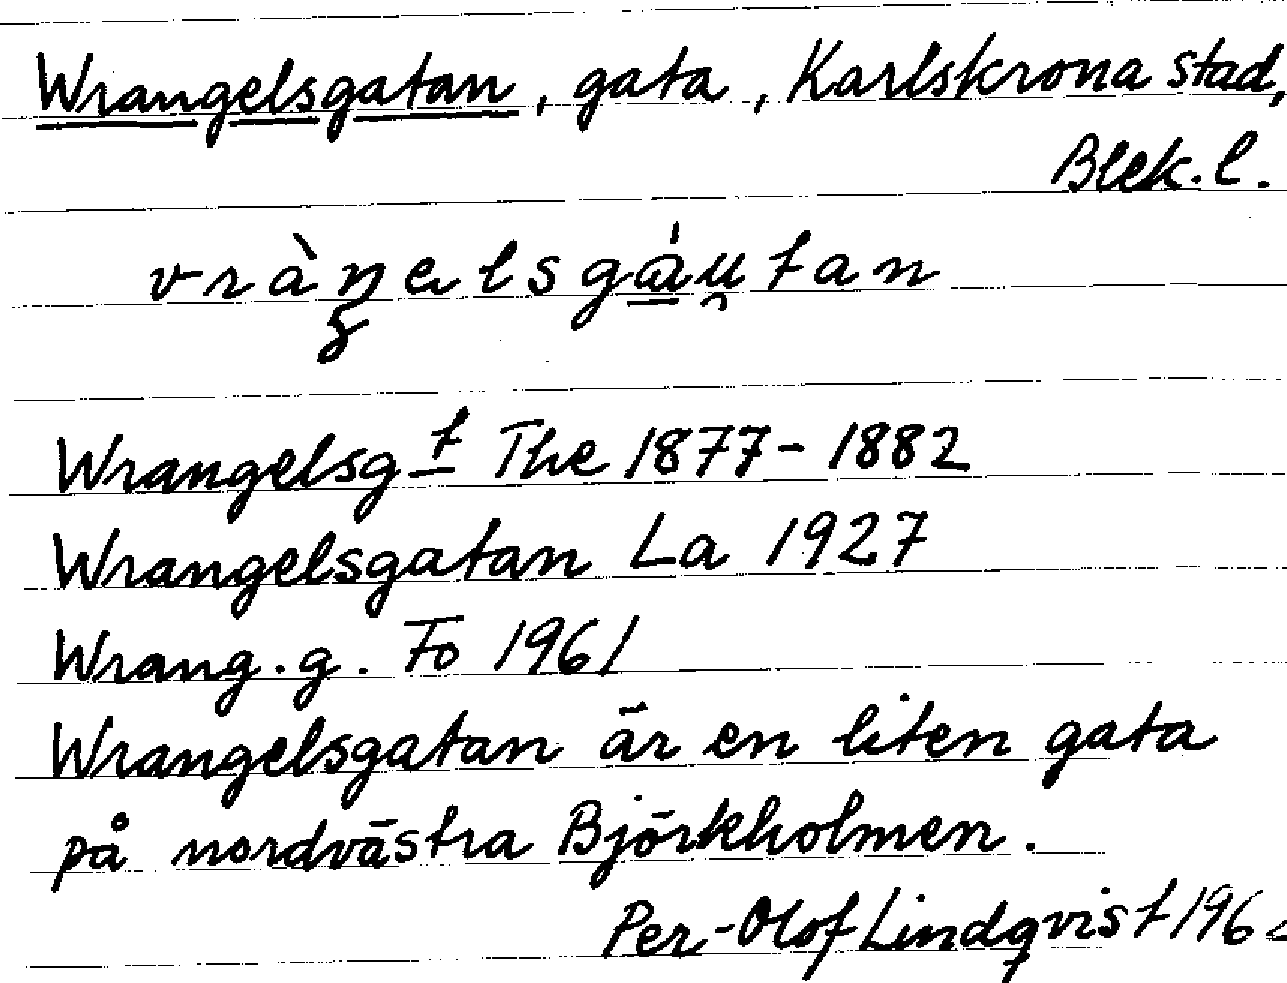 Wrangelsgatan, gata, Karlskrona stad,
Blek. l.
Wrangelsg t The 1877-1882
Wrangelsgatan La 1927
Wrang. g. Fo 1961
Wrangelsgatan är en liten gata
på nordvästra Björkholmen.
Per-Olof Lindqvist